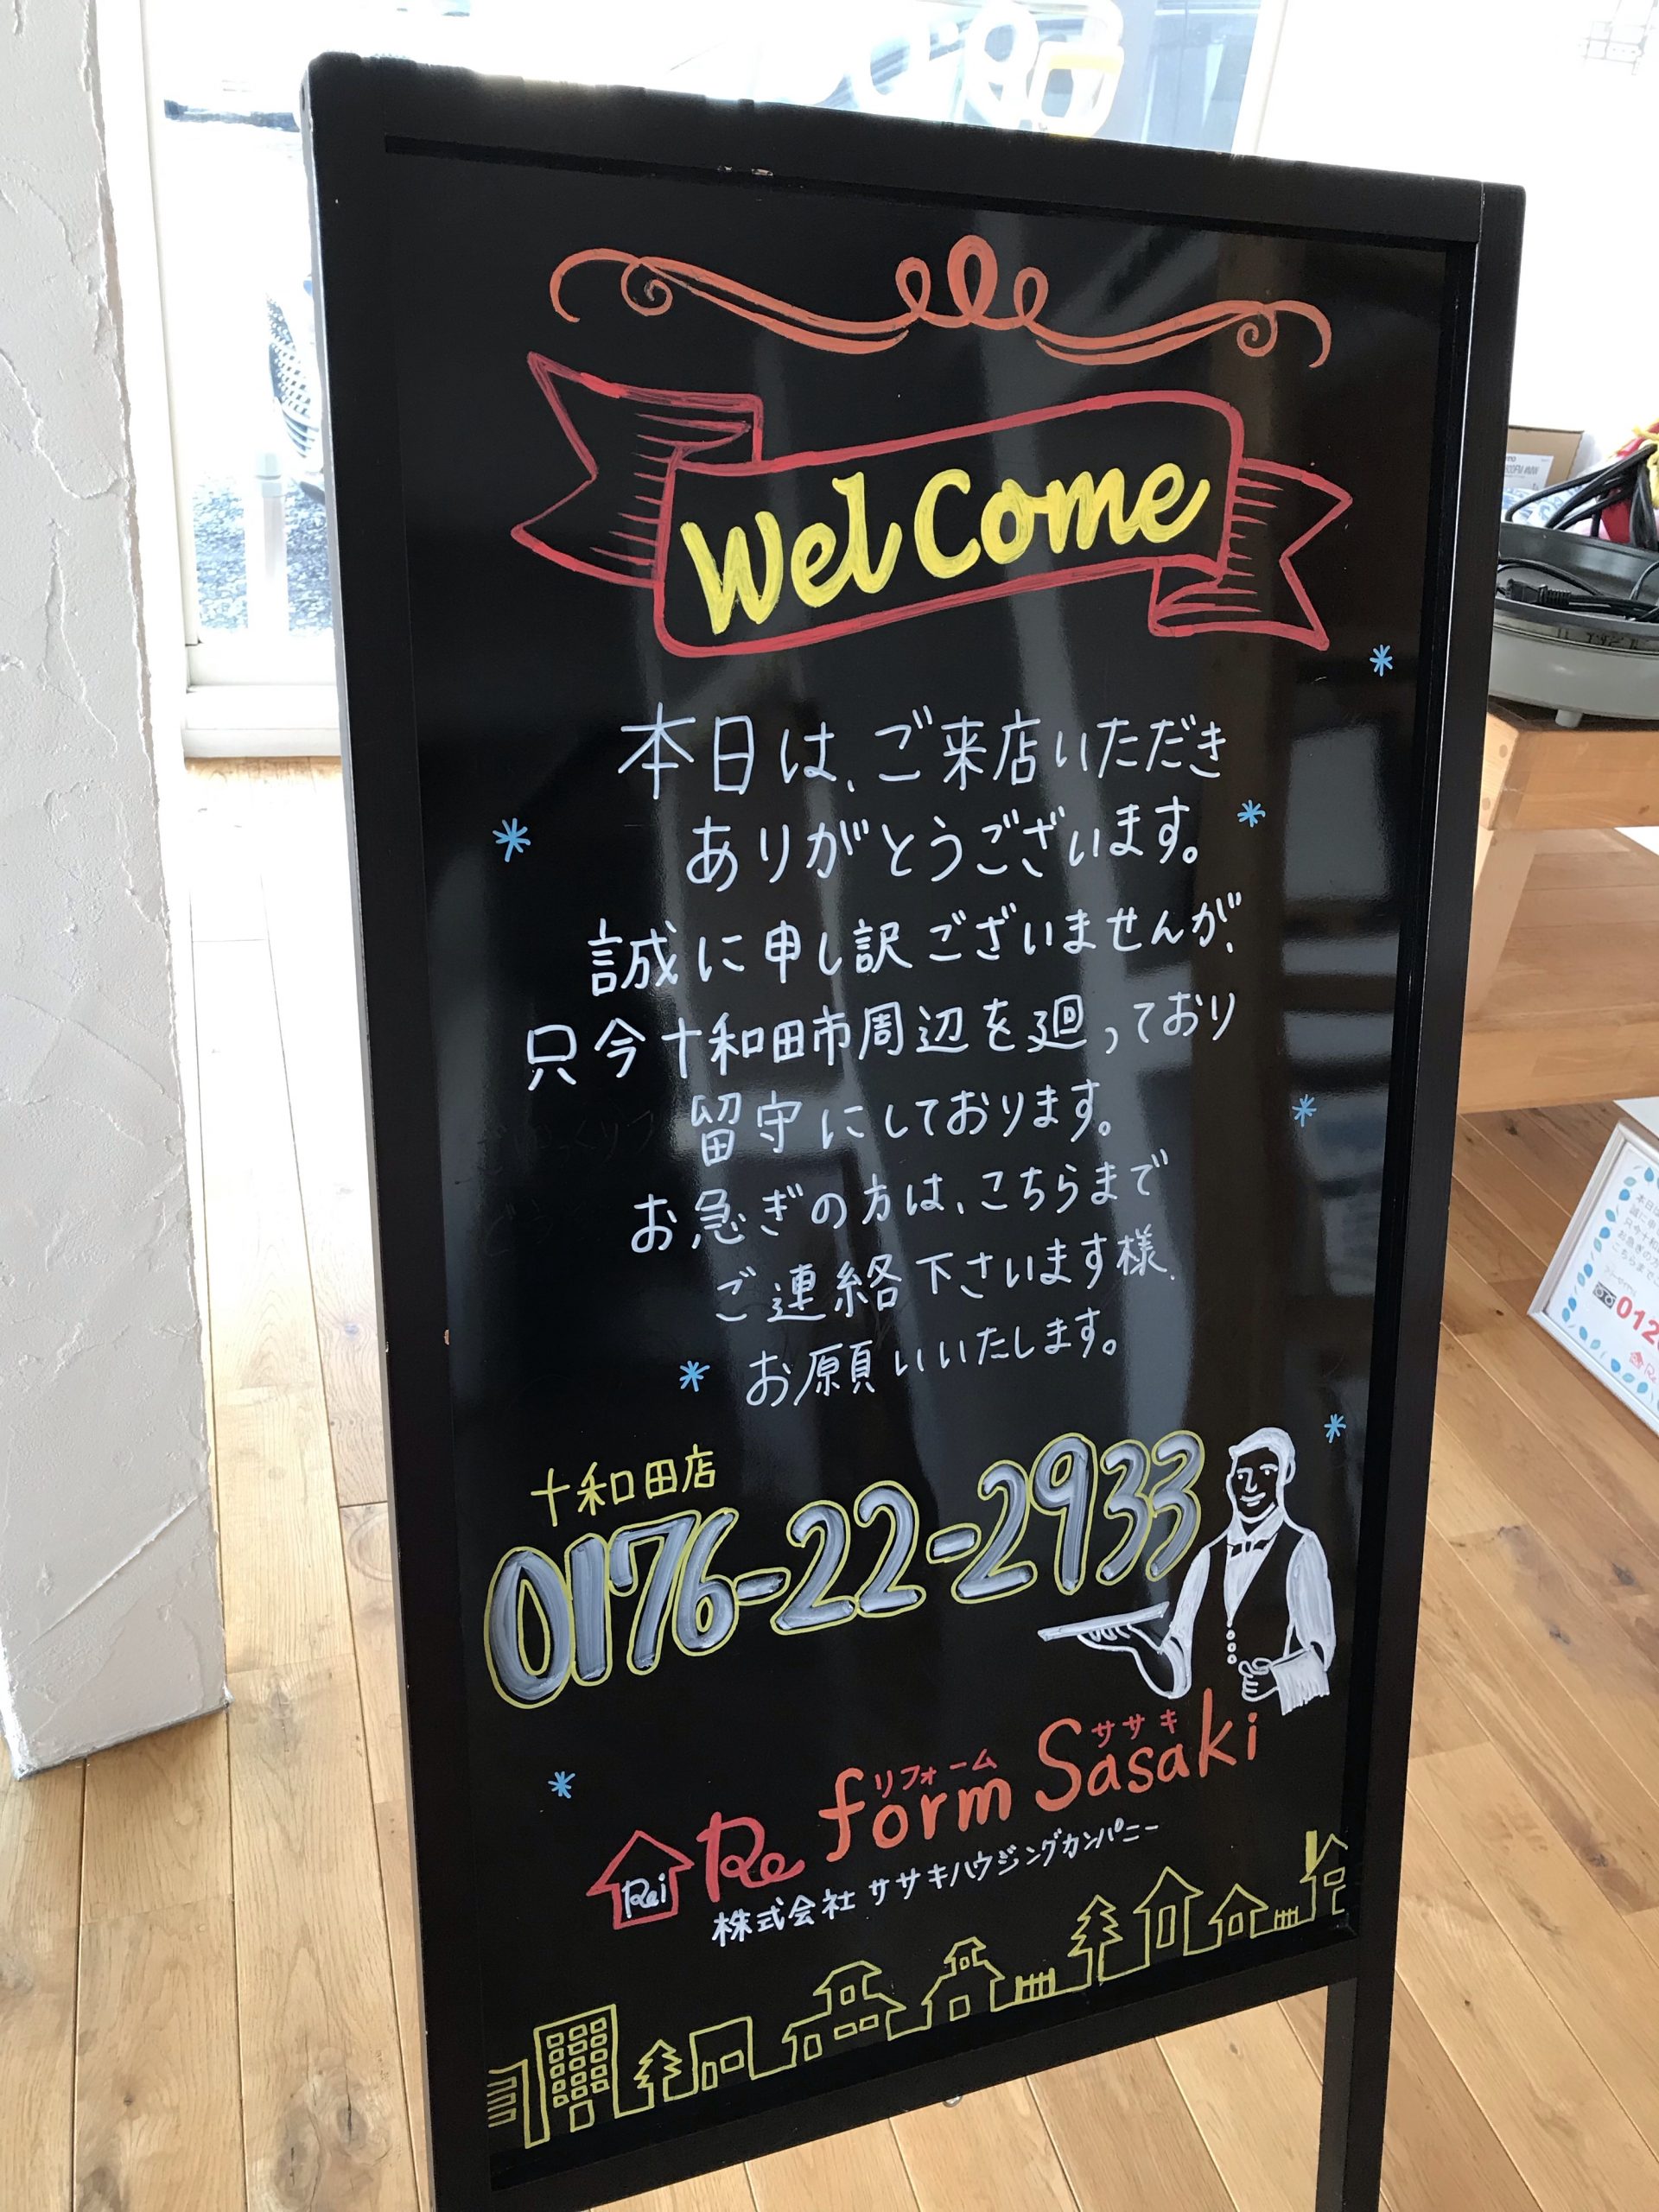 Welcome
本日は、ご来店いただき
ありがとうございます。
誠に申し訳ございませんが、
只今十和田市周辺を廻っており
留守にしております。
お急ぎの方は、こちらまで
ご連絡下さいます様、
お願いいたします。
十和田店
0176-22-2933
リフォーム ササキ
Re form Sasaki
Rei
株式会社 ササキハウジングカンパニー